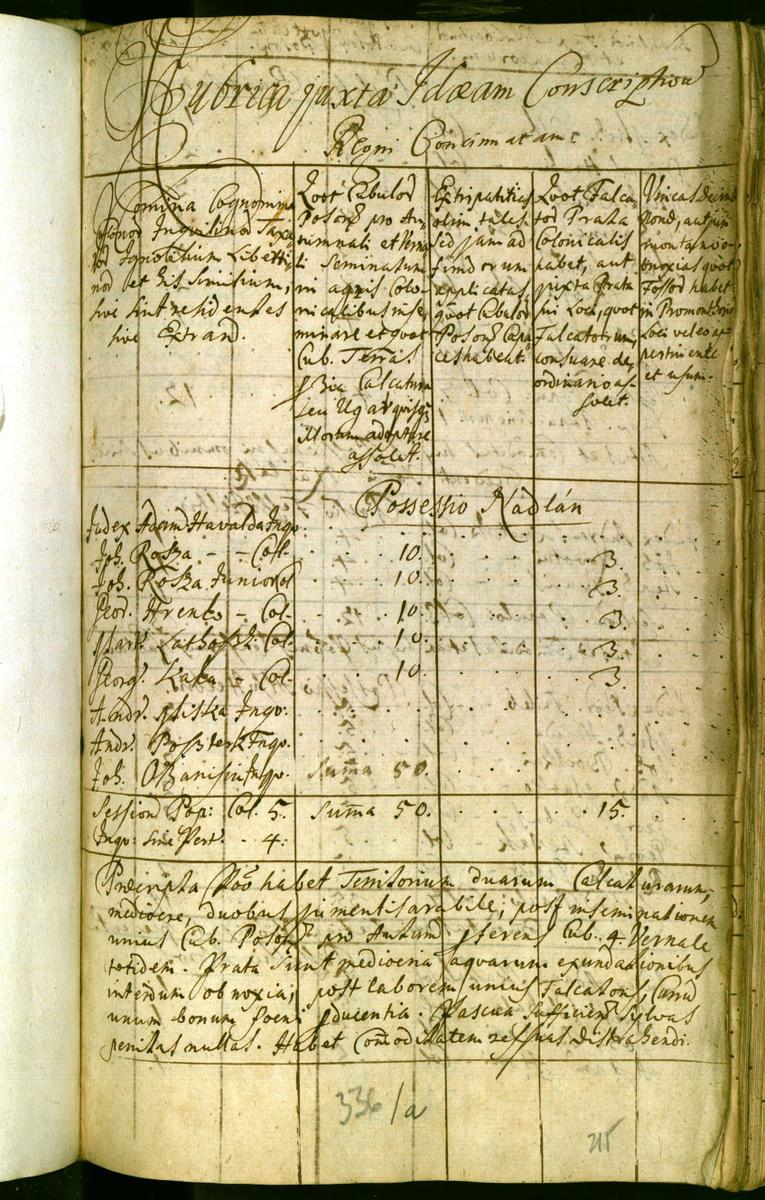 Rubrica juxta Idæam Conscriptioñ
Regni Concinnatam
Nomina Cognomina
Inquilinoꝝ Taxa
Ignobilium Liberti
noꝝ et his Similium,
sive sint residentes
sive Extran.
Quot Cubuloꝝ
Posoñ pro Au
tumnali et Verna
li Seminatum
in agris Colo
nicalibus
minare et quot
Cub. Terras
Calcatura
seu Ugar quisq
illorum adaptare
assolet.
Extirpatitias
olim tales
sed jam ad
fundorum
applicatas
quot Cubuloꝝ
Posoñ Capa
ces habeat.
Quot Falca
toꝝ Prata
Colonicalia
habet, aut
juxta Prata
sui Loci, quot
Falcatorum,
de
ordinario as
solet.
Vineas
montano
onoxias quot
Fossoꝝ habet
in Promontorio
Loci vel eo ap
pertinente
et usum.
Possessio Nadlán
Judex Adam Havalda Inqu.
Joh. Rosza - - Col. 10. 3.
Joh. Rosza Junior Col 10. 3.
Geor. Hrenko - Col. 10. 3.
Mart. Col. 10. 3.
Georg. Kaka - Col. 10. 3.
Andr. Miska Inqu.
Andr. Inqu.
Joh. Inqu. Suma 50.
Session Pop: Col. 5. Suma 50. 15.
Inqu: sine Pert. . 4.
Præscripta Poó habet Territorium duarum Calcaturarum,
mediocre, duobus jumentis arabile; post inseminationem
unius Cub. Posoñ pro Autumñ ferens Cub. 4. Vernale
totidem. Prata sunt mediocria aquarum exundationibus
interdum obnoxia, post laborem unius Falcatoris, Currũ
unum bonum foeni producentia. Pascua sufficient sylvas
penitus nullas. Habet Comoditatem res suas distrahendi.
336/a
215